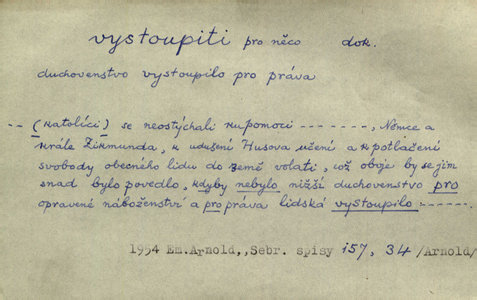 vystoupiti pro něco dok.
duchovenstvo vystoupilo pro práva
-- (Katolíci) se neostýchali ku pomoci -------, Němce a
krále Zikmunda, k udušení Husova učení a k potlačení
svobody obecného lidu do země volati, což oboje by se jim
snad bylo povedlo, kdyby nebylo nižší duchovenstvo pro
opravené náboženství a pro práva lidská vystoupilo ------.
1954 Em.Arnold,,Sebr. spisy 157, 34 /Arnold/